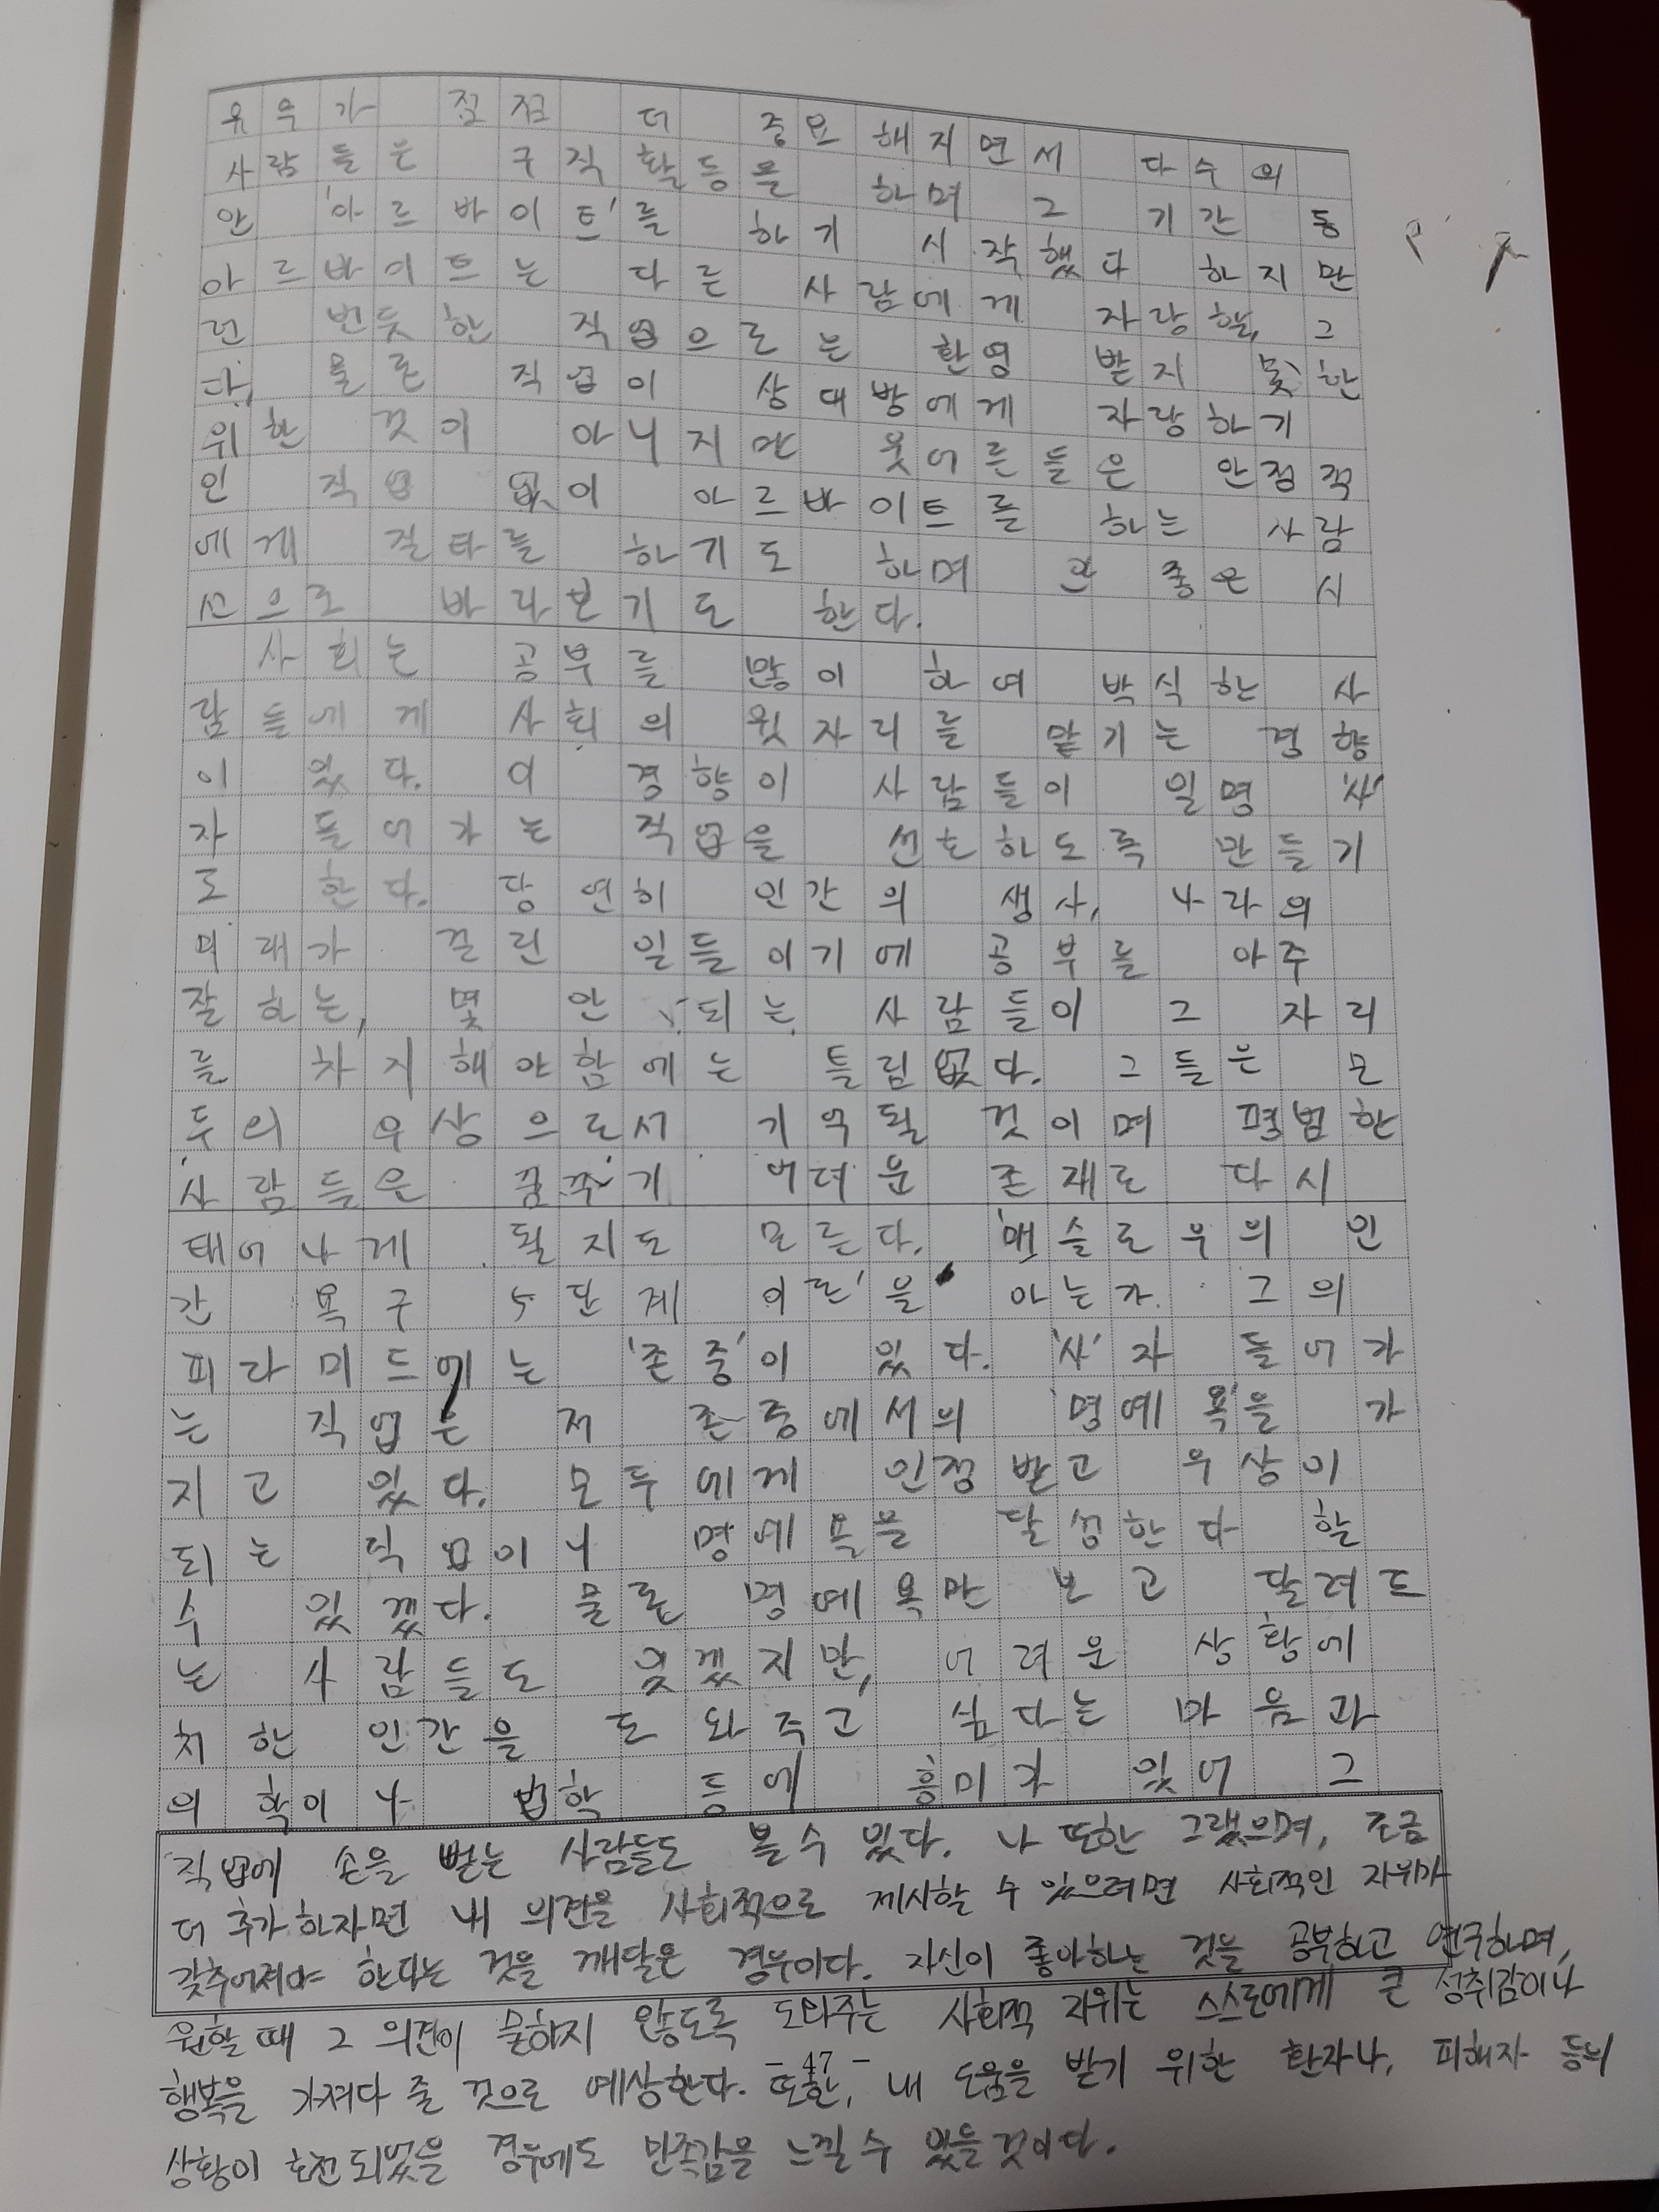 유무가 점점 더 중요해지면서 다수의
사람들은 구직 활동을 하며 그 기간 동
안 '아르바이트'를 하기 시작했다 하지만
아르바이트는 다른 사람에게 자랑할, 그
런 번듯한 직업으로는 환영 받지 못한
다. 물론 직업이 상대방에게 자랑하기
위한 것이 아니지만 윗어른들은 안정적
인 직업 없이 아르바이트를 하는 사람
에게 질타를 하기도 하며 안 좋은 시
선으로 바라보기도 한다.
사회는 공부를 많이 하여 박식한 사
람들에게 사회의 윗자리를 맡기는 경향
이 있다. 이 경향이 사람들이 일명 '사'
자 들어가는 직업을 선호하도록 만들기
도 한다. 당연히 인간의 생사, 나라의
미래가 걸린 일들이기에 공부를 아주
잘하는, 몇 안 되는 사람들이 그 자리
를 차지해야함에는 틀림없다. 그들은 모
두의 우상으로서 기억될 것이며 평범한
사람들은 꿈꾸기 어려운 존재로 다시
태어나게 될지도 모른다. '매슬로우의 인
간 욕구 5단계 이론'을 아는가. 그의
피라미드에는 '존중'이 있다. '사'자 들어가
는 직업은 저 존중에서의 '명예욕'을 가
지고 있다. 모두에게 인정받고 우상이
되는 직업이니 명예욕을 달성한다 할
수 있겠다. 물론 명예욕만 보고 달려드
는 사람들도 있겠지만, 어려운 상황에
처한 인간을 도와주고 싶다는 마음과
의학이나 법학 등에 흥미가 있어 그
직업에 손을 뻗는 사람들도 볼 수 있다. 나 또한 그랬으며, 조금
더 추가하자면 내 의견을 사회적으로 제시할 수 있으려면 사회적인 지위가
갖추어져야 한다는 것을 깨달은 경우이다. 자신이 좋아하는 것을 공부하고 연구하며,
원할 때 그 의견이 묻히지 않도록 도와주는 사회적 지위는 스스로에게 큰 성취감이나
행복을 가져다 줄 것으로 예상한다. 또한, 내 도움을 받기 위한 환자나, 피해자 등의
- 47 -
상황이 호전되었을 경우에도 만족감을 느낄 수 있을것이다.